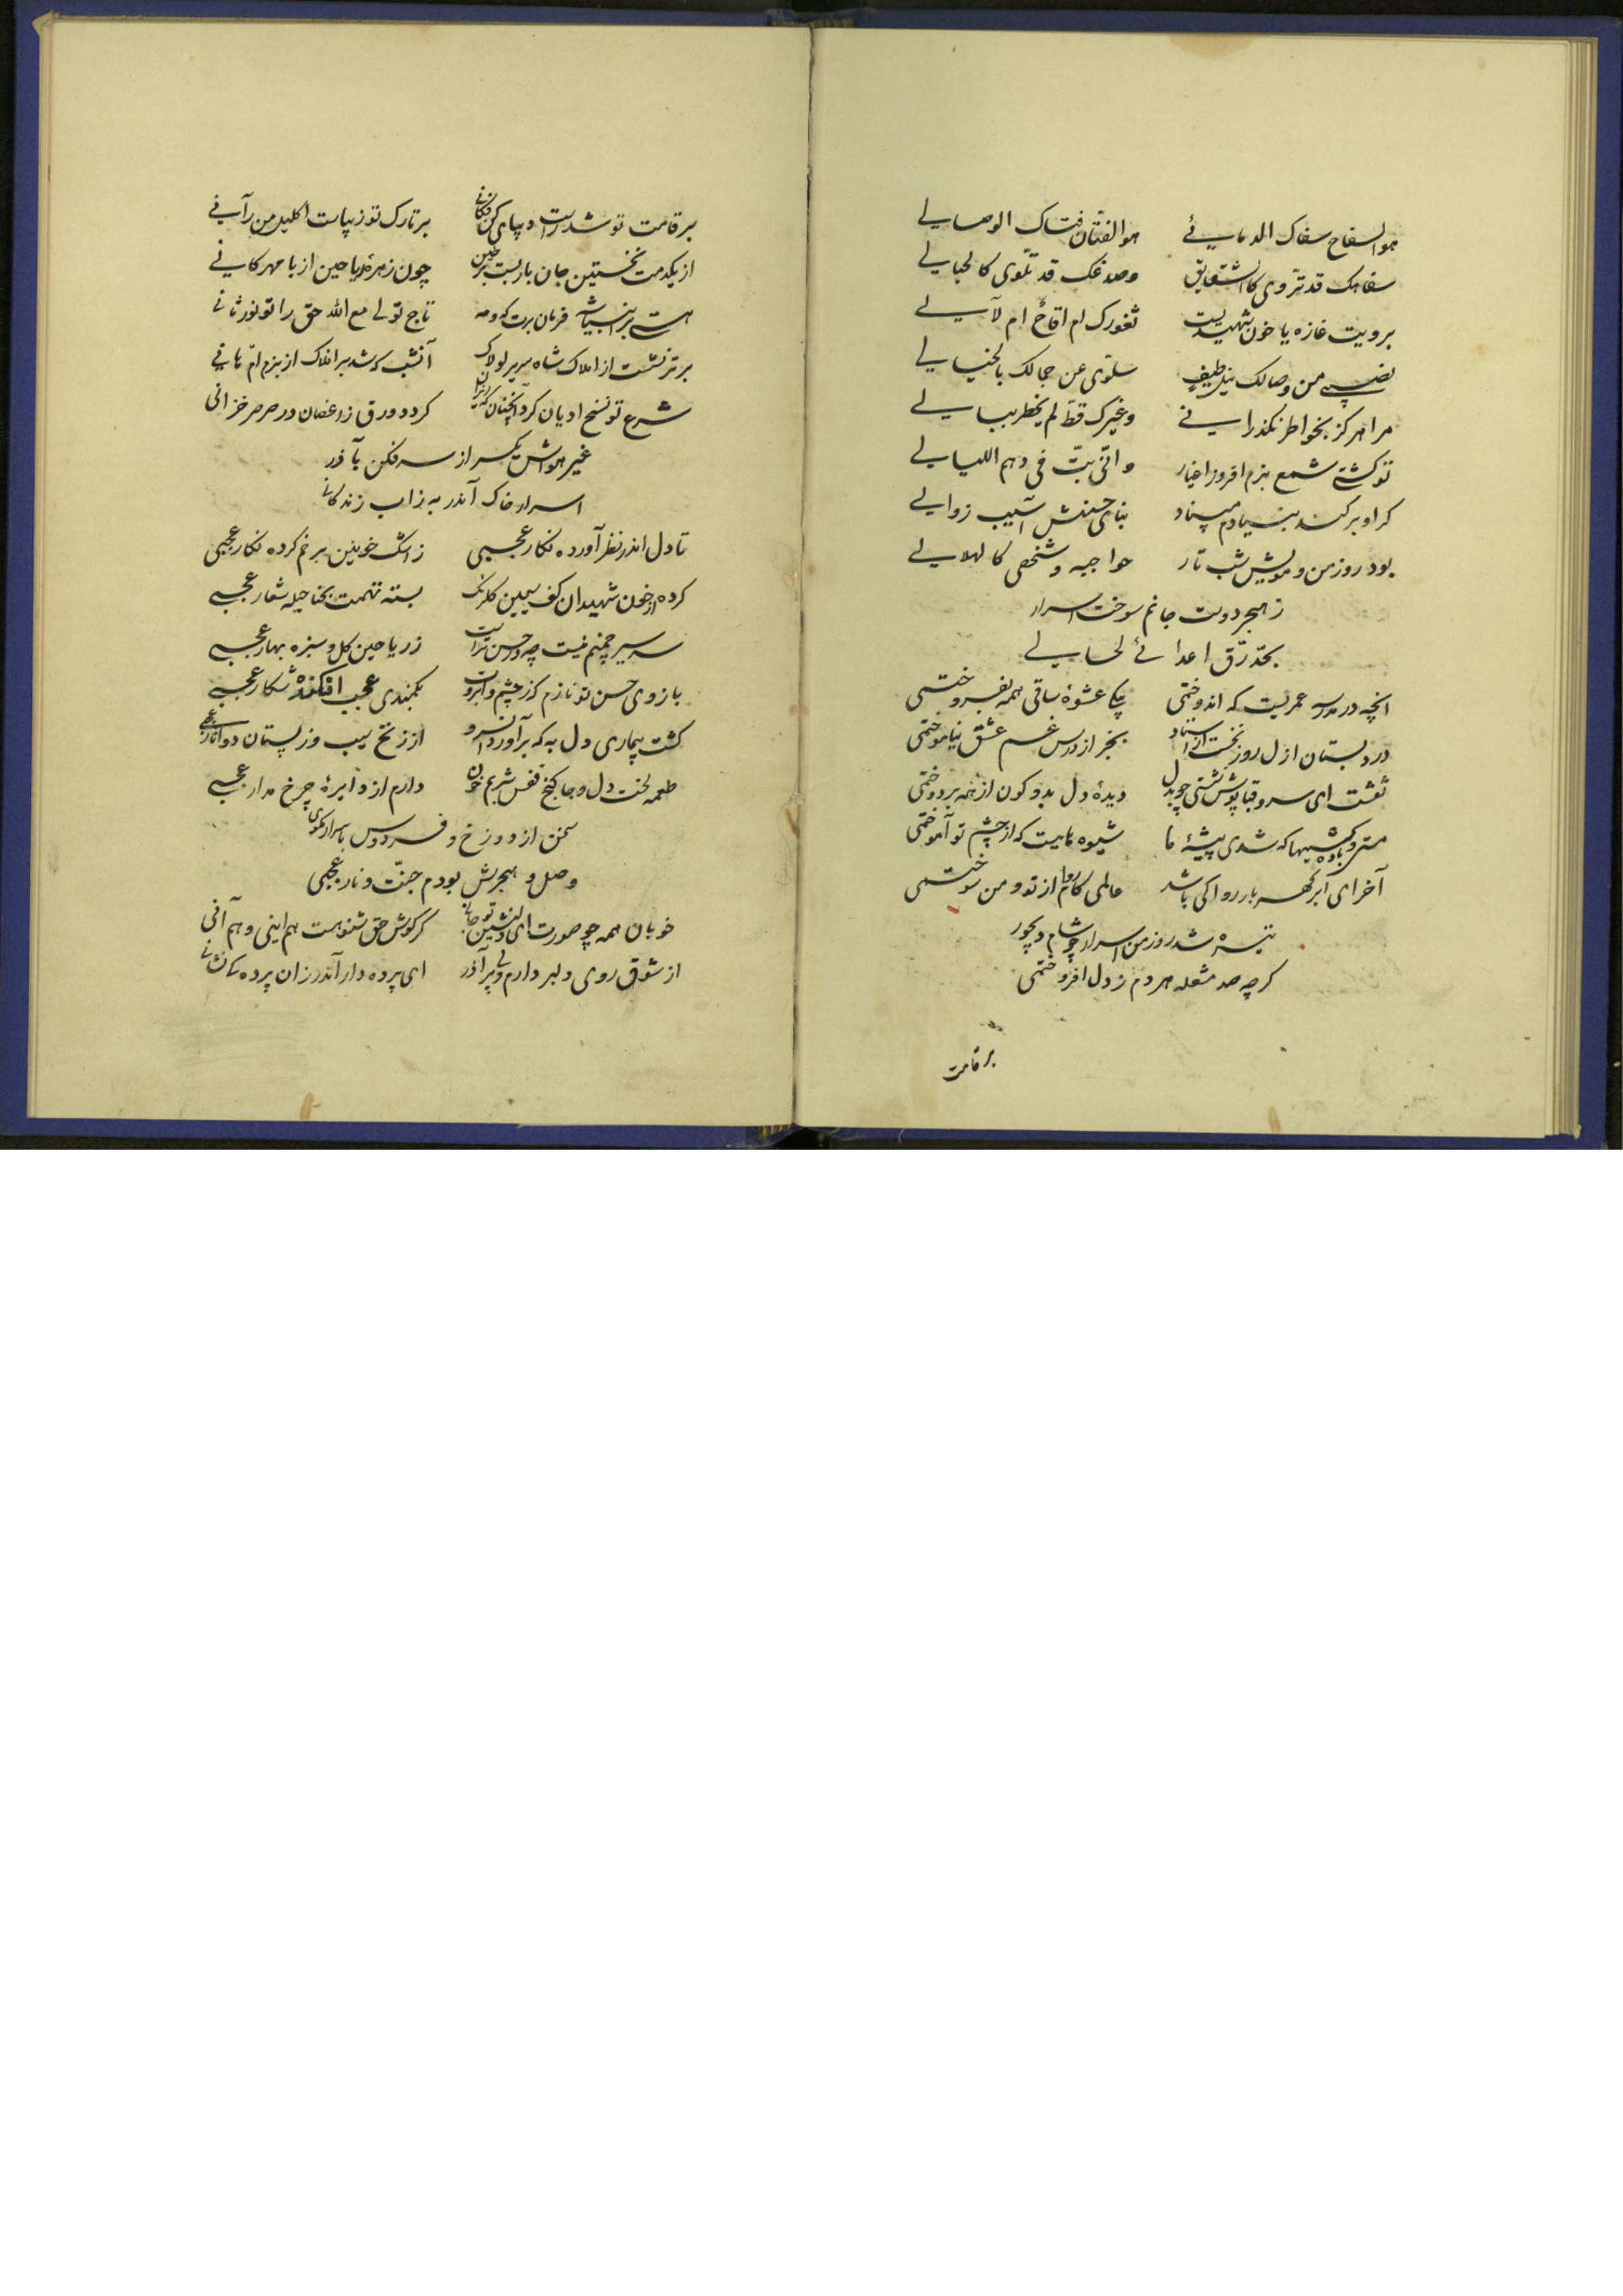 هو السفاح سفاک الدمایئ هو الفتان فتاک الوصایلے
سفاهک قد تروی کالشقایق وصدغک قد تلوی کالحبایلے
برویت غازه یا خون شهیدیست ثغورک ام اقاح ام لآیلے
نصیبے من وصالک نیل طیف سلوی عن جمالک بالخیایلے
مرا هرکز بخواطر نکذرانے وغیرک قط لم یخطر ببایلے
تو کشتے شمع بزم افروز اغیار وانی بت فی دهم اللیایلے
کر او بر کند بنیادم مبیناد بنای حسنش آسیب زوایلے
بود روز من و مویش شب تار حواجبه وشخصی کالهلایلے
ز هجر دوست جانم سوخت اسرار
تحدرق اعدائے لحایلے
انچه در مدرسه عمریست که اندوختمی بیکے عشوهٔ ساقی همه بفروختمی
در دبستان ازل روز نخست از استاد بجز از درس غم عشق نیاموختمی
نقشت ای سرو قباپوش نشستی چو بدل دیدهٔ دل بدو کون از همه بردوختمی
مستی و باده کشیها که شدی پیشهٔ ما شیوه‌هاییست که از چشم تو آموختمی
آخر ای ابر کهربار روا کی باشد عالمی کامروا از تو و من سوختمی
تیره شد روز من اسرار چو شام دیجور
کرچه صد مشعله هر دم ز دل افروختمی
بر قامت
بر قامت تو شد راست دیبای کن فکانے بر تارک تو زیباست اکلیل من رآنے
از یکدمت نخستین جان یاربست بر طین چون زهرهٔ ریاحین از با مهرکانے
هستے بر انبیا شه فرمان برت که و مه تاج تو لے مع الله حق را تو نور ثانے
برتر نشست از املاک شاه سریر لولاک آنشب که شد بر افلاک از بزم ام هانے
شرع تو نسخ ادیان کرد آنچنان که ریزان کردد ورق ز اغصان در صرصر خزانی
غیر هواش یکسر از سر فکن بآذر
اسرار خاک آندر به ز اب زندکانے
تا دل اندر نظر آورده نکار عجبیی ز اشک خونین برخم کرده نکار عجبیی
کرده از خون شهیدان کف سیمین کلرنک بسته تهمت بحنا حیله شعار عجبے
سر سیر چمنم نیست چه در حسن تراست ز ریاحین کل و سبزه بهار عجبے
بازوی حسن تو نازم کز چشم و ابروت بکمندی عجب افکنده شکار عجبے
کشت بیماری دل به که برآورد آنسرو از زنخ سیب وز پستان دو انار عجبے
طعمه لخت دل و جا کنج قفس شربم خون دارم از دایرهٔ چرخ مدار عجبے
سخن از دوزخ و فردوس باسرار مکوی
وصل و هجرش بودم جنت و نار عجبی
خوبان همه چو صورت ای دلنشین تو جانے کر کوش حق شنو هست هم اینی و هم آنی
از شوق روی دلبر دارم دلے پر آذر ای پرده دار آندر زان پرده کن نشانے